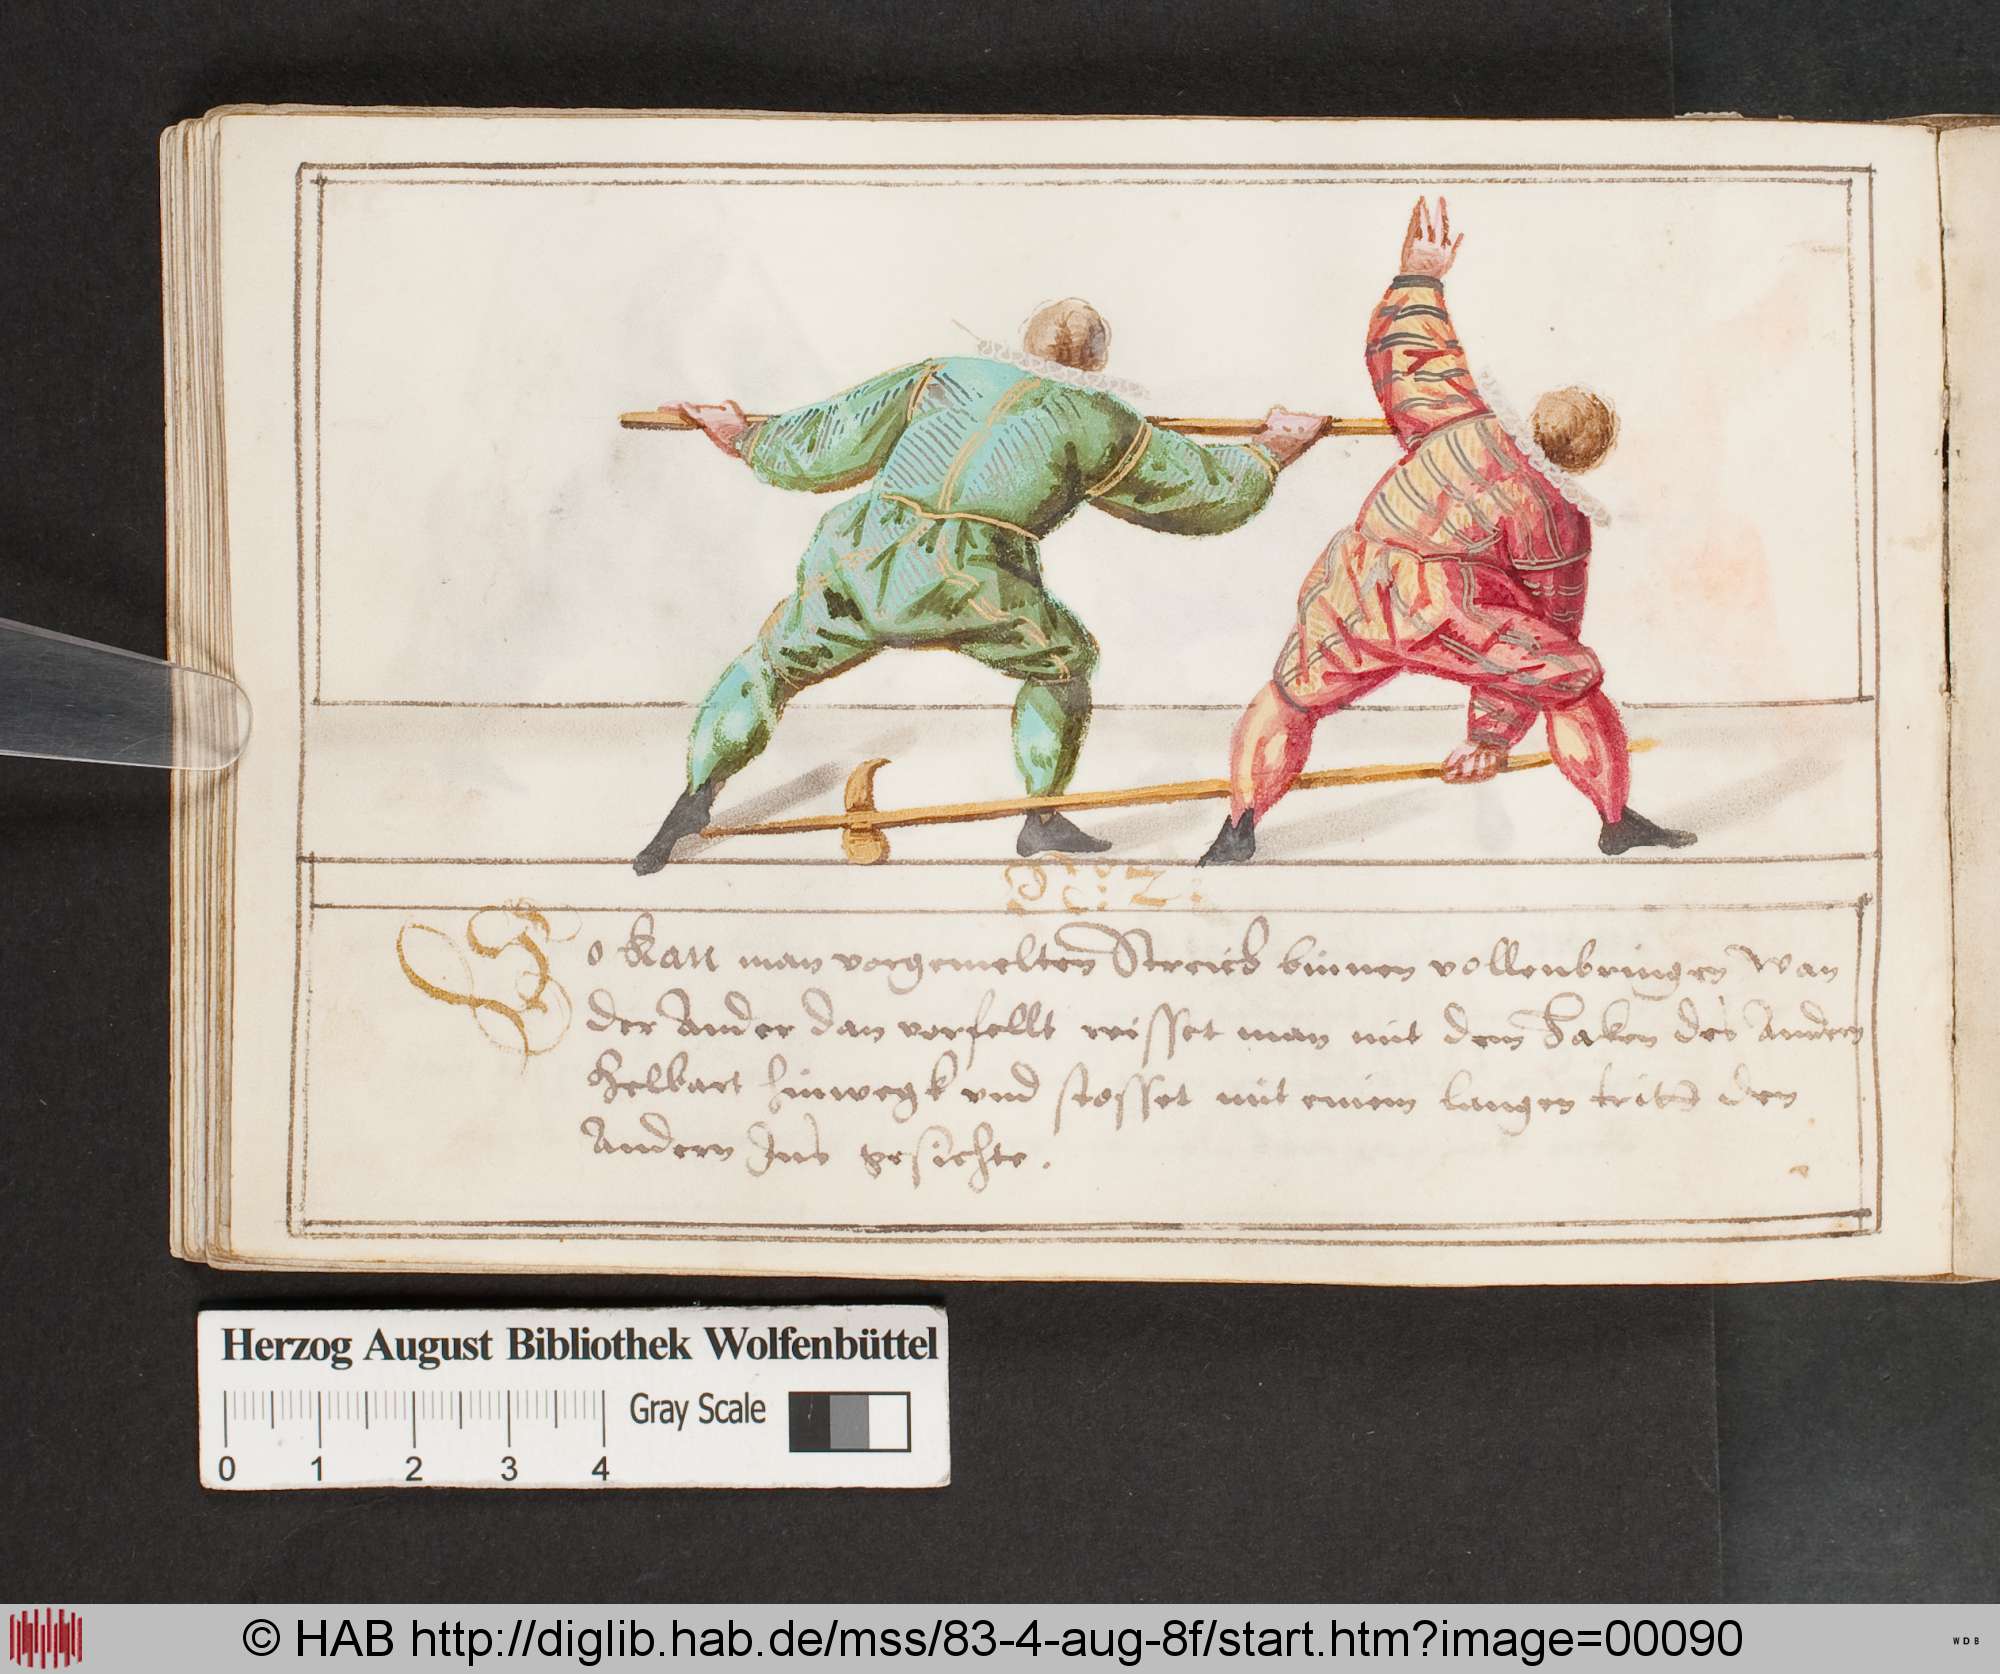 No: 2:
So kan man vorgemelten Streich binnen vollenbringen wan
der Ander dan vorfellt reisset man mit dem Haken des Andern
Helbart hinwegk vnd stosset mit einem langen tritt den
Andern Ins gesichte.
Herzog August Bibliothek Wolfenbüttel
Gray Scale
0 1 2 3 4
© HAB http://diglib.hab.de/mss/83-4-aug-8f/start.htm?image=00090
WDB